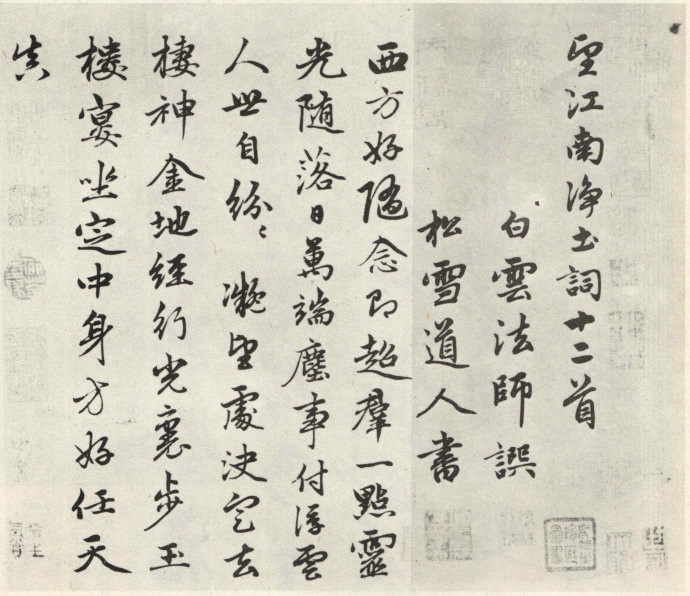 望江南净土詞十二首
白雲法師譔
松雪道人書
西方好隨念即超羣一點靈
光随落日萬端塵事付浮雲
人世自紛〻凝望處決定去
棲神金地經行光裏步玉
樓宴坐定中身方好任天
真